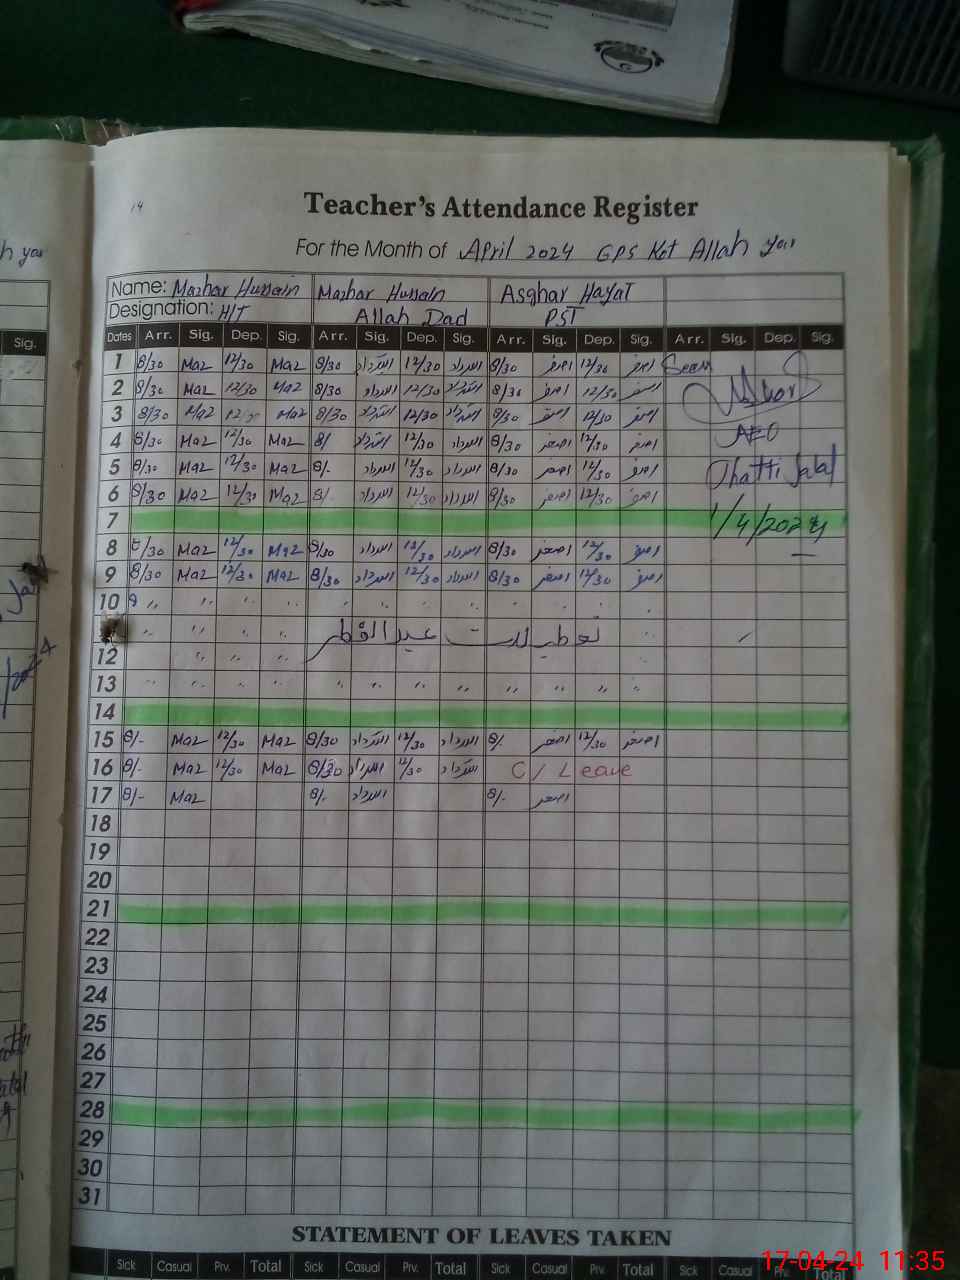 14
Teacher's Attendance Register
For the Month of April 2024 GPS Kot Allah yar
Name: Mazhar Hussain Mazhar Hussain Asghar Hayat
Designation: H/T Allah Dad PST
Dates Arr. Sig. Dep. Sig. Arr. Sig. Dep. Sig. Arr. Sig. Dep. Sig. Arr. Sig. Dep. Sig.
1 8/30 Maz 12/30 Maz 8/30 اللہ داد 12/30 اللہ داد 8/30 اصغر 12/30 اصغر Seen
2 8/30 Maz 12/30 Maz 8/30 اللہ داد 12/30 اللہ داد 8/30 اصغر 12/30 اصغر
3 8/30 Maz 12/30 Maz 8/30 اللہ داد 12/30 اللہ داد 8/30 اصغر 12/30 اصغر
4 8/30 Maz 12/30 Maz 8/ اللہ داد 12/30 اللہ داد 8/30 اصغر 12/30 اصغر AEO
5 8/30 Maz 12/30 Maz 8/- اللہ داد 12/30 اللہ داد 8/30 اصغر 12/30 اصغر Dhatti Jalal
6 8/30 Maz 12/30 Maz 8/- اللہ داد 12/30 اللہ داد 8/30 اصغر 12/30 اصغر
7 1/4/2024
8 8/30 Maz 12/30 Maz 8/30 اللہ داد 12/30 اللہ داد 8/30 اصغر 12/30 اصغر
9 8/30 Maz 12/30 Maz 8/30 اللہ داد 12/30 اللہ داد 8/30 اصغر 12/30 اصغر
10 8 " " " " " " " " " " "
" " " " تعطیلات عید الفطر "
12 " " " "
13 " " " " " " " " " " " "
14
15 8/- Maz 12/30 Maz 8/30 اللہ داد 12/30 اللہ داد 8/- اصغر 12/30 اصغر
16 8/- Maz 12/30 Maz 8/30 اللہ داد 12/30 اللہ داد C/ Leave
17 8/- Maz 8/- اللہ داد 8/- اصغر
18
19
20
21
22
23
24
25
26
27
28
29
30
31
STATEMENT OF LEAVES TAKEN
Sick Casual Prv. Total Sick Casual Prv. Total Sick Casual Prv. Total Sick Casual Prv. Total
17-04-24 11:35